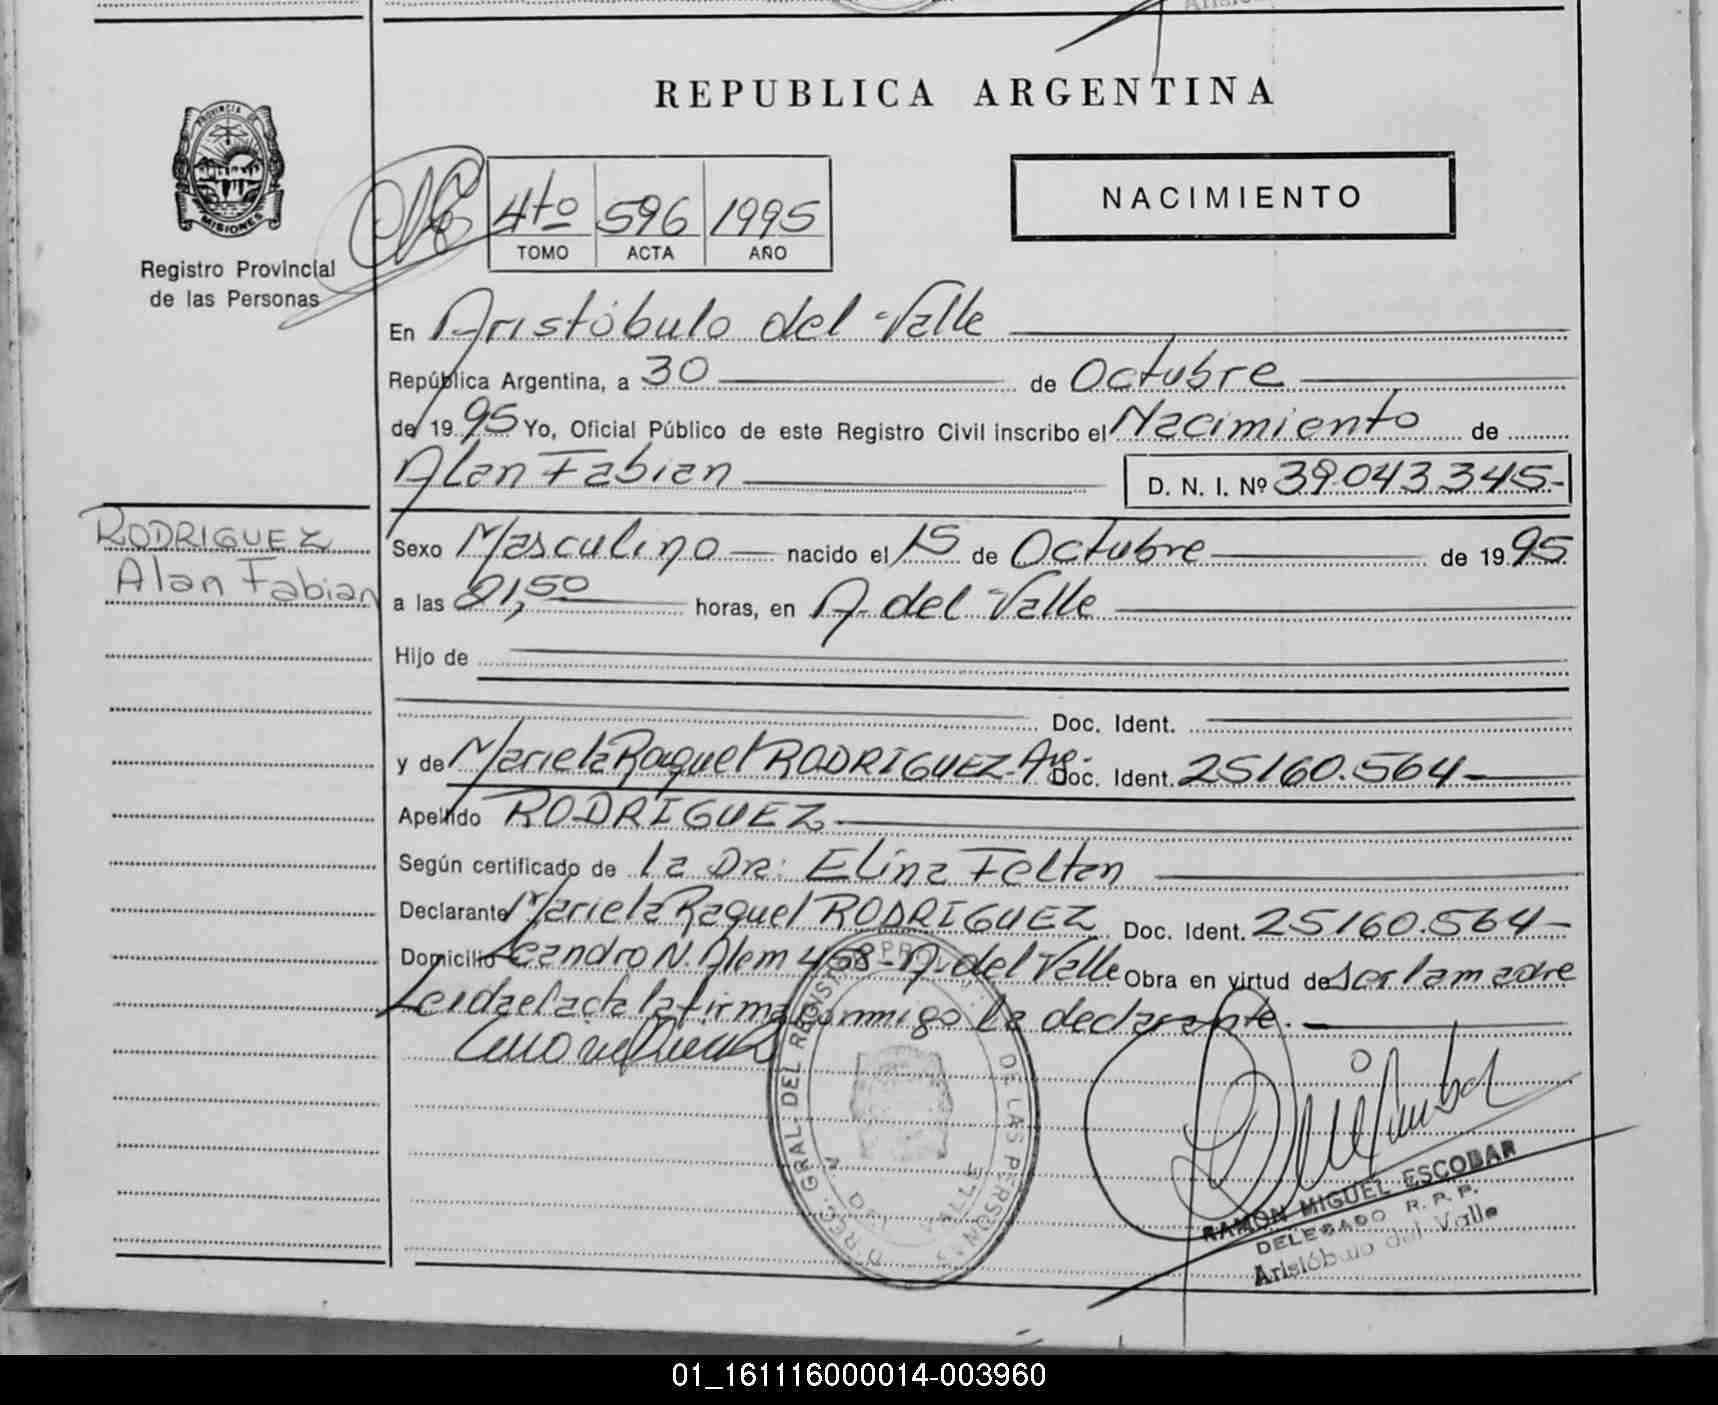 REPUBLICA ARGENTINA
PROVINCIA DE
MISIONES
Registro Provincial
de las Personas
4to 596 1995
TOMO ACTA AÑO
NACIMIENTO
En Aristóbulo del Valle
República Argentina, a 30 de Octubre
de 1995 Yo, Oficial Público de este Registro Civil inscribo el Nacimiento de
Alan Fabian D. N. I. Nº 39.043.345-
RODRIGUEZ
Alan Fabian
Sexo Masculino nacido el 15 de Octubre de 1995
a las 01,50 horas, en A. del Valle
Hijo de
Doc. Ident.
y de Mariela Raquel RODRIGUEZ- Arg.- Doc. Ident. 25160.564-
Apellido RODRIGUEZ
Según certificado de la Dr: Elina Feltan
Declarante Mariela Raquel RODRIGUEZ Doc. Ident. 25160.564-
Domicilio Leandro N. Alem 458- A. del Valle Obra en virtud de ser la madre
Leida el acta la firma conmigo la declarante.
DEL REGISTRO PROV. DE LAS PERSONAS
A. DEL VALLE
RAMÓN MIGUEL ESCOBAR
DELEGADO R. P. P.
Aristóbulo del Valle
01_161116000014-003960